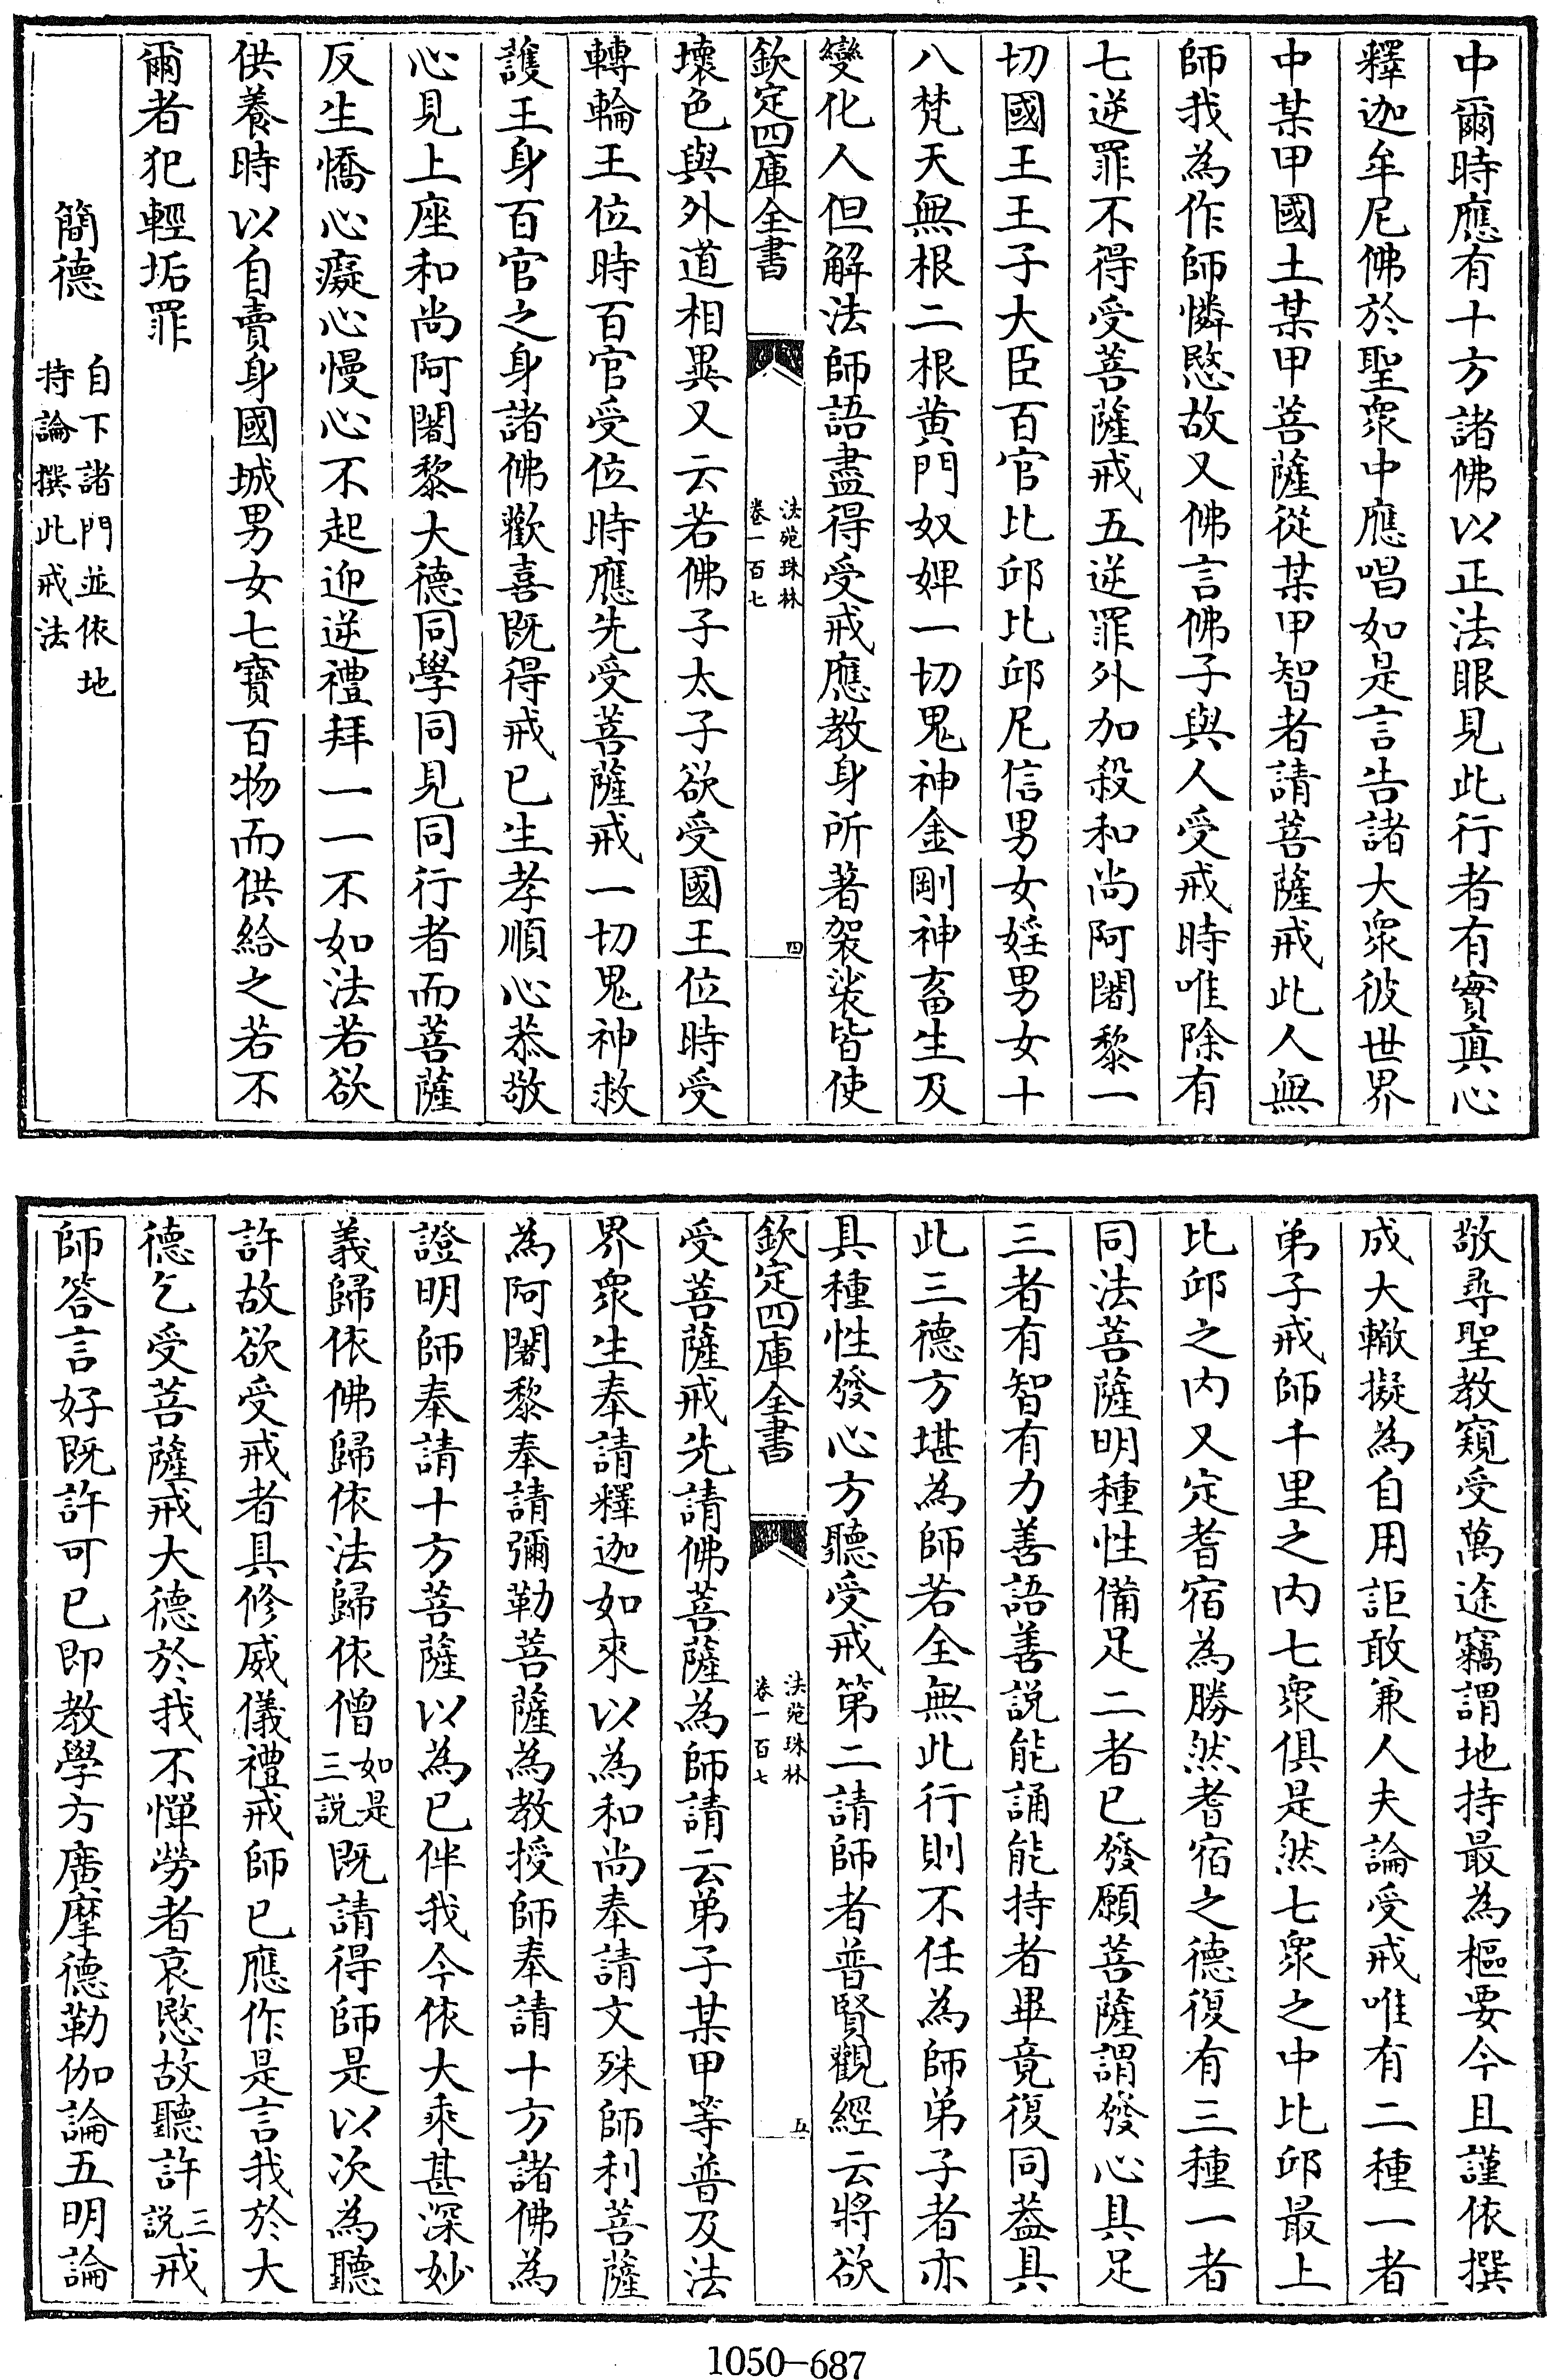 中爾時應有十方諸佛以正法眼見此行者有實真心
釋迦牟尼佛於聖衆中應唱如是言告諸大衆彼世界
中某甲國土某甲菩薩從某甲智者請菩薩戒此人無
師我為作師憐愍故又佛言佛子與人受戒時唯除有
七逆罪不得受菩薩戒五逆罪外加殺和尚阿闍黎一
切國王王子大臣百官比邱比邱尼信男女婬男女十
八梵天無根二根黄門奴婢一切鬼神金剛神畜生及
變化人但解法師語盡得受戒應教身所著袈裟皆使
欽定四庫全書
法苑珠林
卷一百七
四
壞色與外道相異又云若佛子太子欲受國王位時受
轉輪王位時百官受位時應先受菩薩戒一切鬼神救
護王身百官之身諸佛歡喜既得戒已生孝順心恭敬
心見上座和尚阿闍黎大德同學同見同行者而菩薩
反生憍心癡心慢心不起迎逆禮拜一一不如法若欲
供養時以自賣身國城男女七寶百物而供給之若不
爾者犯輕垢罪
簡德
自下諸門並依地
持論撰此戒法
敬尋聖教窺受萬途竊謂地持最為樞要今且謹依撰
成大轍擬為自用詎敢兼人夫論受戒唯有二種一者
弟子戒師千里之内七衆俱是然七衆之中比邱最上
比邱之内又定耆宿為勝然耆宿之德復有三種一者
同法菩薩明種性備足二者已發願菩薩謂發心具足
三者有智有力善語善説能誦能持者畢竟復同葢具
此三德方堪為師若全無此行則不任為師弟子者亦
具種性發心方聽受戒第二請師者普賢觀經云將欲
欽定四庫全書
法苑珠林
卷一百七
五
受菩薩戒先請佛菩薩為師請云弟子某甲等普及法
界衆生奉請釋迦如來以為和尚奉請文殊師利菩薩
為阿闍黎奉請彌勒菩薩為教授師奉請十方諸佛為
證明師奉請十方菩薩以為已伴我今依大乘甚深妙
義歸依佛歸依法歸依僧如是三説既請得師是以次為聽
許故欲受戒者具修威儀禮戒師已應作是言我於大
德乞受菩薩戒大德於我不憚勞者哀愍故聽許三説戒
師答言好既許可已即教學方廣摩德勒伽論五明論
1050-687